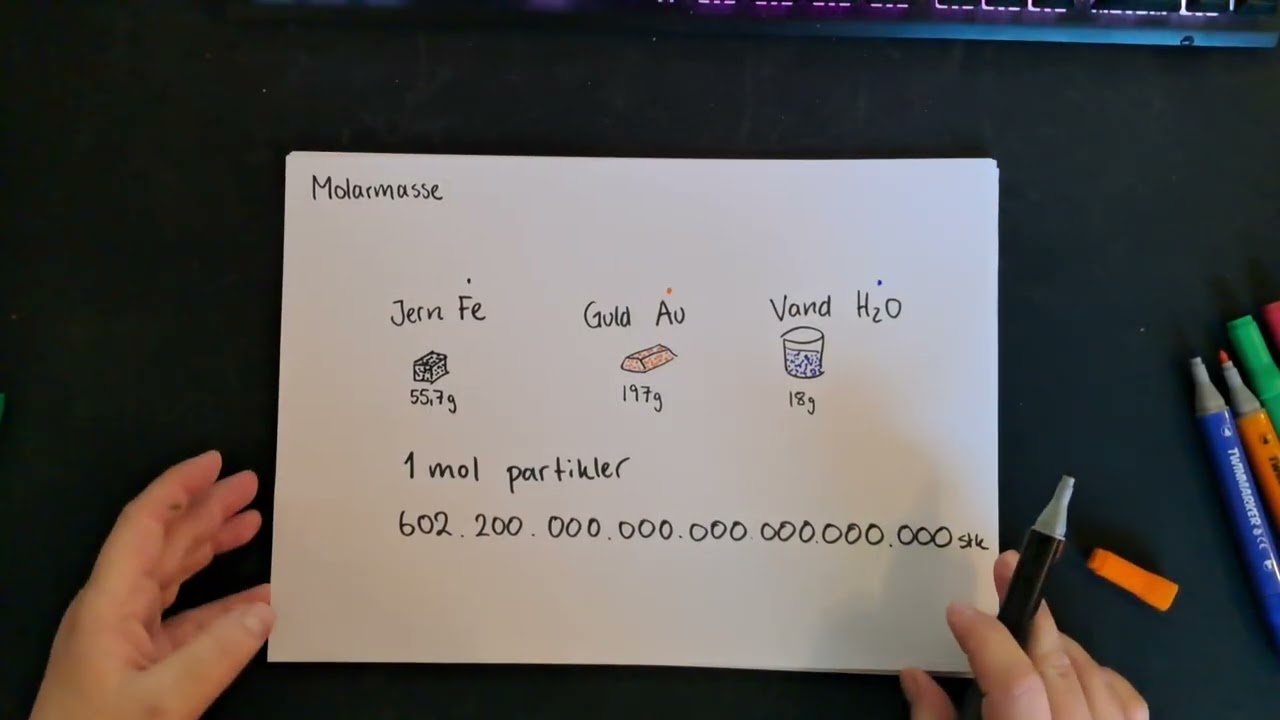 Molarmasse
Jern Fe Guld Au Vand H₂O
55,7g 197g 18g
1 mol partikler
602.200.000.000.000.000.000.000 stk
TWINMARKER